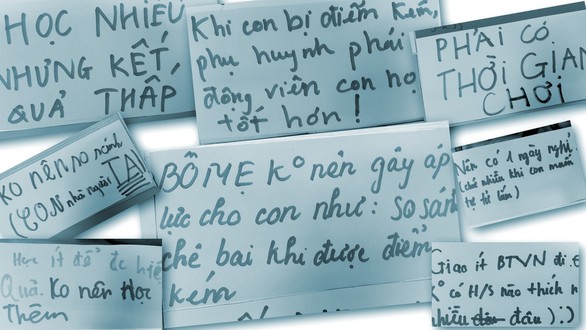 HỌC NHIỀU
NHƯNG KẾT
QUẢ THẤP
Khi con bị điểm kém,
phụ huynh phải
động viên con học
tốt hơn!
PHẢI CÓ
THỜI GIAN
CHƠI
KO nên so sánh
(CON nhà người TA)
BỐ MẸ Kº nên gây áp
lực cho con như: so sánh
chê bai khi được điểm
kém
Nên có 1 ngày nghỉ
(chủ nhiều khi con muốn
tự tử lắm)
Học ít để đc hiệu
Quả. Ko nên Học
Thêm
Giao ít BTVN đi
có H/S nào thích n
nhiều đâu :)